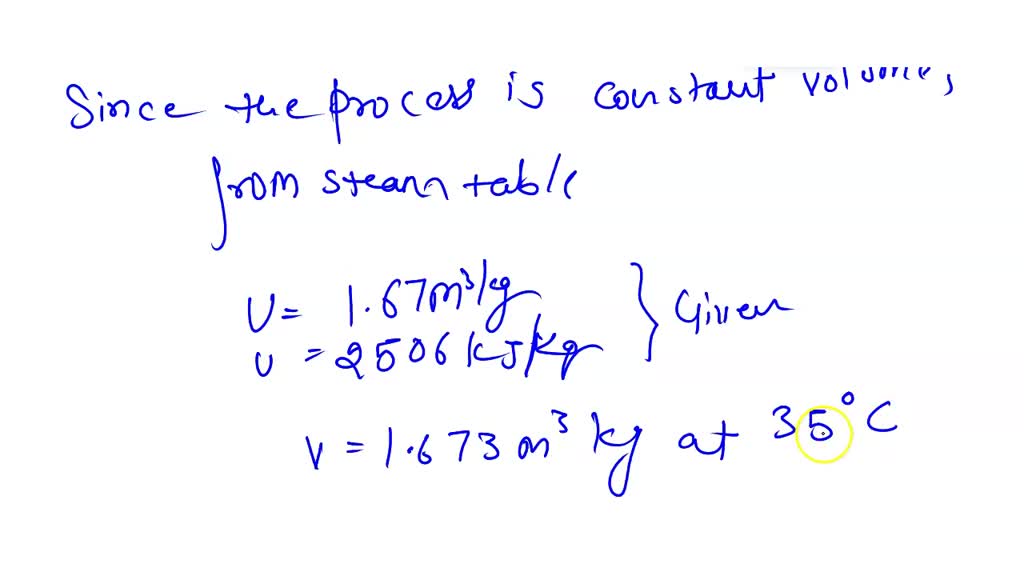 Since the process is constant volume,
from steam table
U = 1.67 m³/kg
u = 2506 kJ/kg } Given
v = 1.673 m³ kg at 35°C